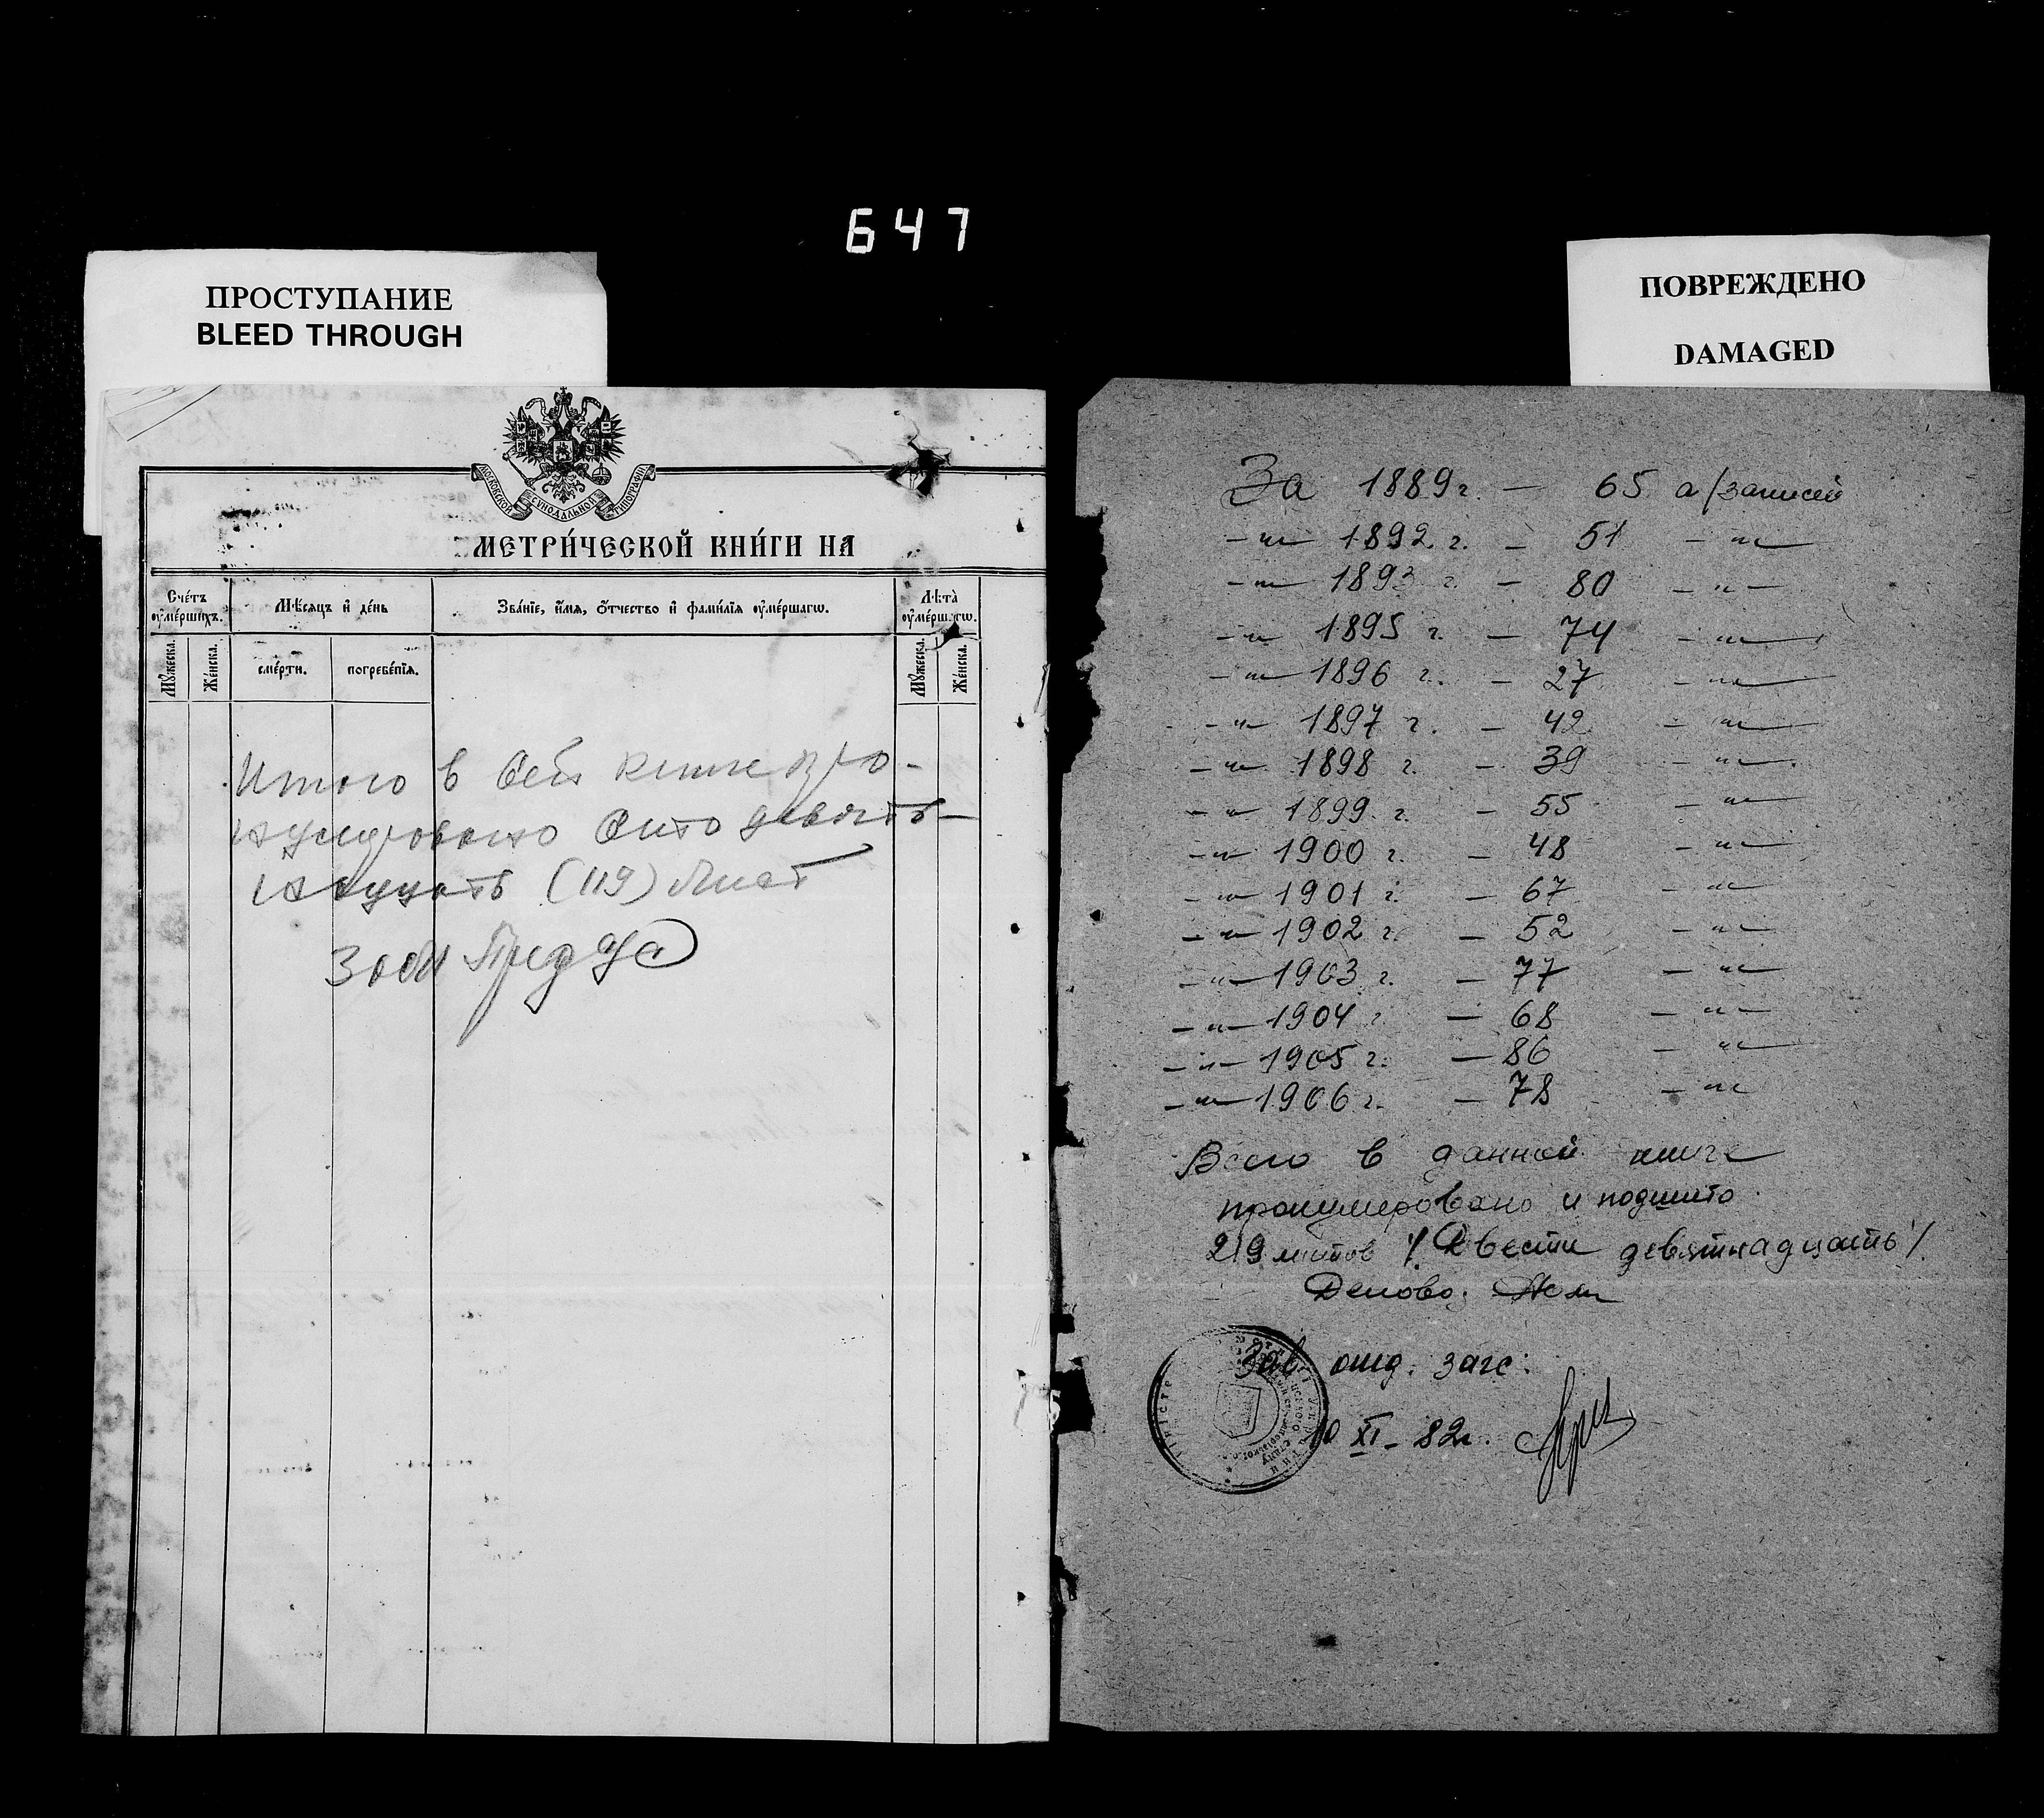 647
ПРОСТУПАНИЕ
BLEED THROUGH
ПОВРЕЖДЕНО
DAMAGED
МОСКОВСКОЙ СѴНОДАЛЬНОЙ ТИПОГРАФІИ
МЕТРИ́ЧЕСКОЙ КНИ́ГИ НА
Сче́тъ ѹ҆ме́ршихъ.
Мѣ́сяцъ и҆ де́нь
Зва́нїе, и҆́мя, ѻ҆́тчество и҆ фами́лїя ѹ҆ме́ршагѡ.
Лѣ́та ѹ҆ме́ршагѡ.
Мꙋ́жеска.
Же́нска.
сме́рти.
погребе́нїя.
Мꙋ́жеска.
Же́нска.
Итого в сей книге про-
нумеровано сто девят-
надцать (119) лист
За 1889 г. — 65 а/записей
—"— 1892 г. — 51 —"—
—"— 1893 г. — 80 —"—
—"— 1895 г. — 74 —"—
—"— 1896 г. — 27 —"—
—"— 1897 г. — 42 —"—
—"— 1898 г. — 39 —"—
—"— 1899 г. — 55 —"—
—"— 1900 г. — 48 —"—
—"— 1901 г. — 67 —"—
—"— 1902 г. — 52 —"—
—"— 1903 г. — 77 —"—
—"— 1904 г. — 68 —"—
—"— 1905 г. — 86 —"—
—"— 1906 г. — 78 —"—
Всего в данной книге
пронумеровано и подшито
219 листов /Двести девятнадцать/
Зав отд. загс:
10 XI – 82г.